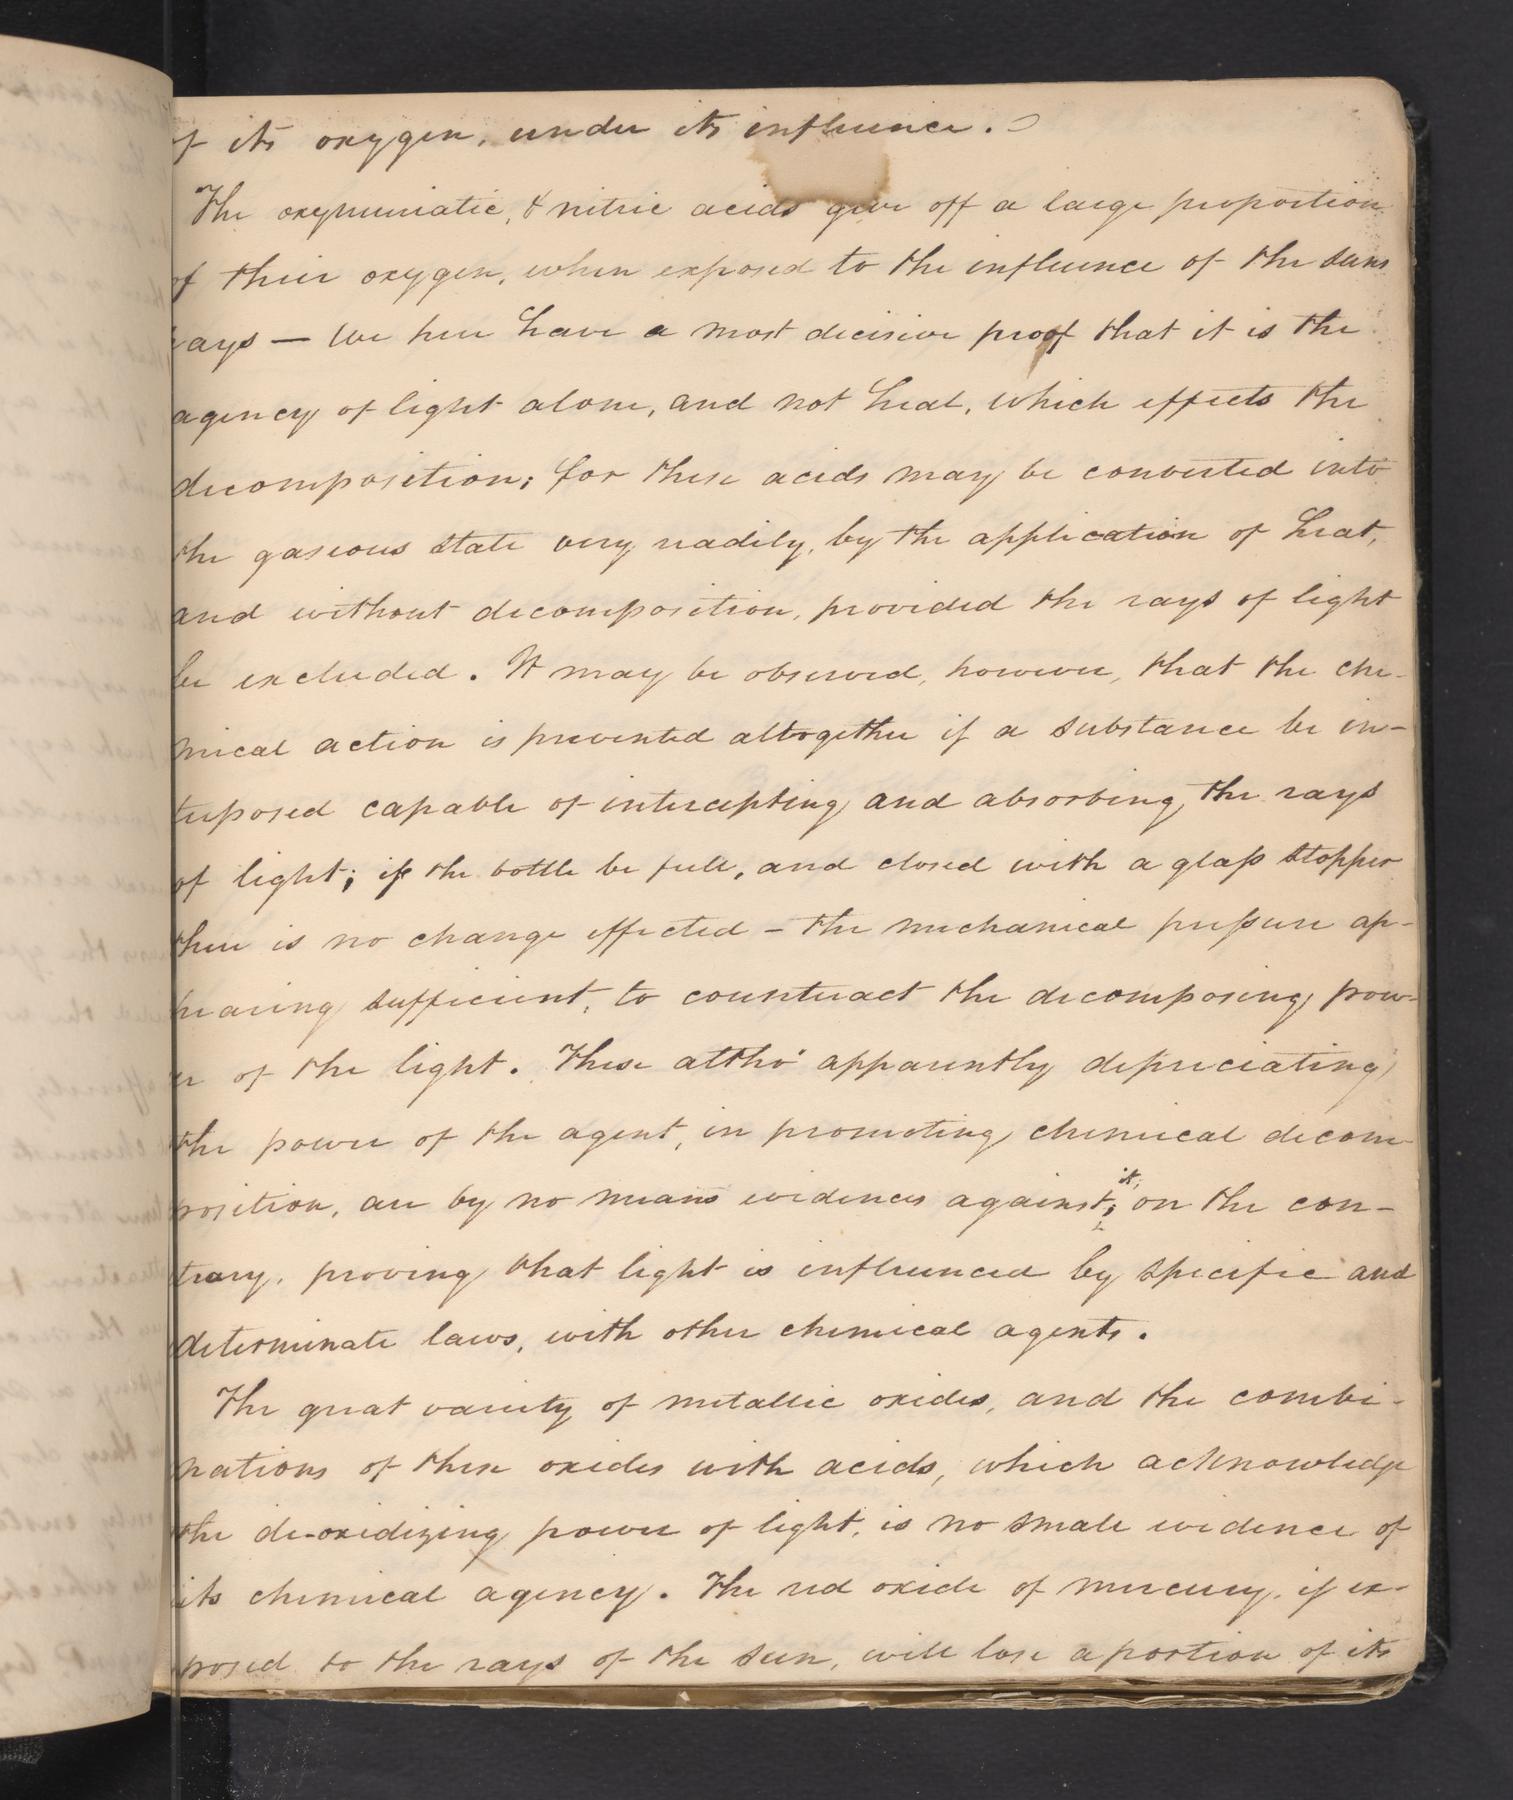 of its oxygen, under its influence.
The oxymuriatic, & nitric acids give off a large proportion
of their oxygen, when exposed to the influence of the suns
rays — We here have a most decisive proof that it is the
agency of light alone, and not heat, which effects the
decomposition; for these acids may be converted into
the gaseous state very readily, by the application of heat,
and without decomposition, provided the rays of light
be excluded. It may be observed, however, that the che-
mical action is prevented altogether if a substance be in-
terposed capable of intercepting and absorbing the rays
of light; if the bottle be full, and closed with a glaſs stopper
there is no change effected – the mechanical preſsure ap-
pearing sufficient, to counteract the decomposing pow-
er of the light. These altho' apparently depreciating
the power of the agent, in promoting chemical decom-
position, are by no means evidences against it; on the con-
trary, proving that light is influenced by specific and
determinate laws, with other chemical agents.
The great variety of metallic oxides, and the combi-
nations of these oxides with acids, which acknowledge
the de-oxidizing power of light, is no small evidence of
its chemical agency. The red oxide of mercury, if ex-
posed to the rays of the sun, will lose a portion of its